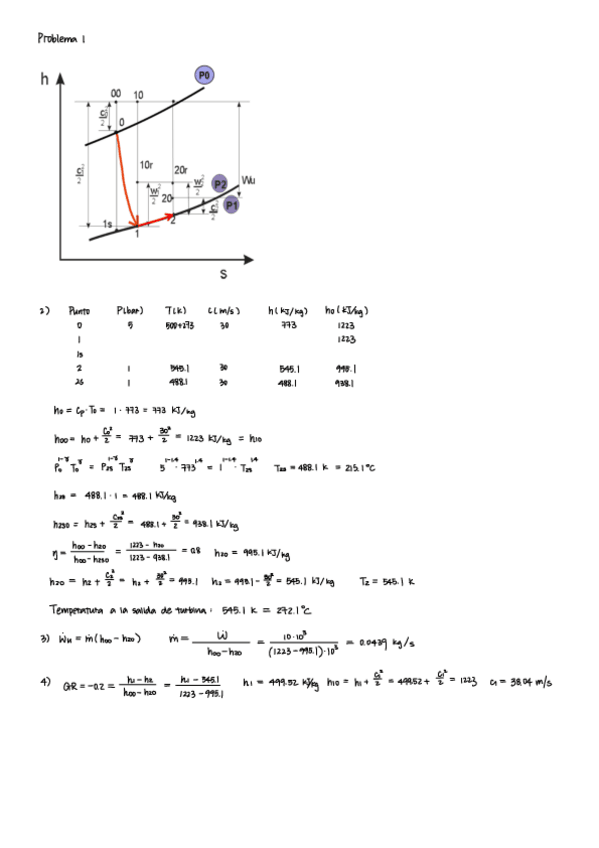 Problema 1
h
P0
00 10
0
c₀²/2
c₁²/2
10r
20r
w₁²/2
w₂²/2
20
P2
Wu
P1
c₂²/2
1s
1
2
S
2) Punto P(bar) T(K) C(m/s) h(kJ/kg) h₀(kJ/kg)
0 5 500+273 30 773 1223
1 1223
1s
2 1 545.1 30 545.1 995.1
2s 1 488.1 30 488.1 938.1
h₀ = Cp·T₀ = 1·773 = 773 kJ/kg
h₀₀ = h₀ + C₀²/2 = 773 + 30²/2 = 1223 kJ/kg = h₁₀
P₀^(1-γ) T₀^γ = P₂s^(1-γ) T₂s^γ 5^(1-1.4) · 773^1.4 = 1^(1-1.4) · T₂s^1.4 T₂s = 488.1 K = 215.1°C
h₂s = 488.1·1 = 488.1 kJ/kg
h₂s₀ = h₂s + C₂s²/2 = 488.1 + 30²/2 = 938.1 kJ/kg
η = (h₀₀ - h₂₀)/(h₀₀ - h₂s₀) = (1223 - h₂₀)/(1223 - 938.1) = 0.8 h₂₀ = 995.1 kJ/kg
h₂₀ = h₂ + C₂²/2 = h₂ + 30²/2 = 995.1 h₂ = 995.1 - 30²/2 = 545.1 kJ/kg T₂ = 545.1 K
Temperatura a la salida de turbina: 545.1 K = 272.1°C
3) Ẇu = ṁ(h₀₀ - h₂₀) ṁ = Ẇ/(h₀₀ - h₂₀) = 10·10³/((1223 - 995.1)·10³) = 0.0439 kg/s
4) GR = -0.2 = (h₁ - h₂)/(h₀₀ - h₂₀) = (h₁ - 545.1)/(1223 - 995.1) h₁ = 499.52 kJ/kg h₁₀ = h₁ + C₁²/2 = 499.52 + C₁²/2 = 1223 C₁ = 38.04 m/s